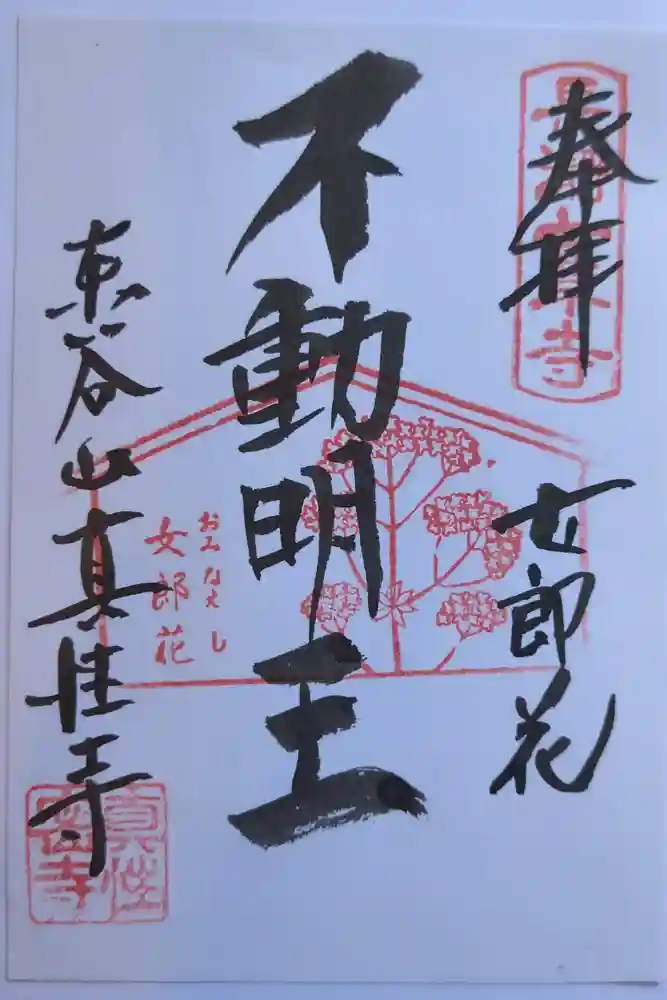 奉拝
長瀞七草寺
女郎花
不動明王
おみなえし
女郎花
東谷山真性寺